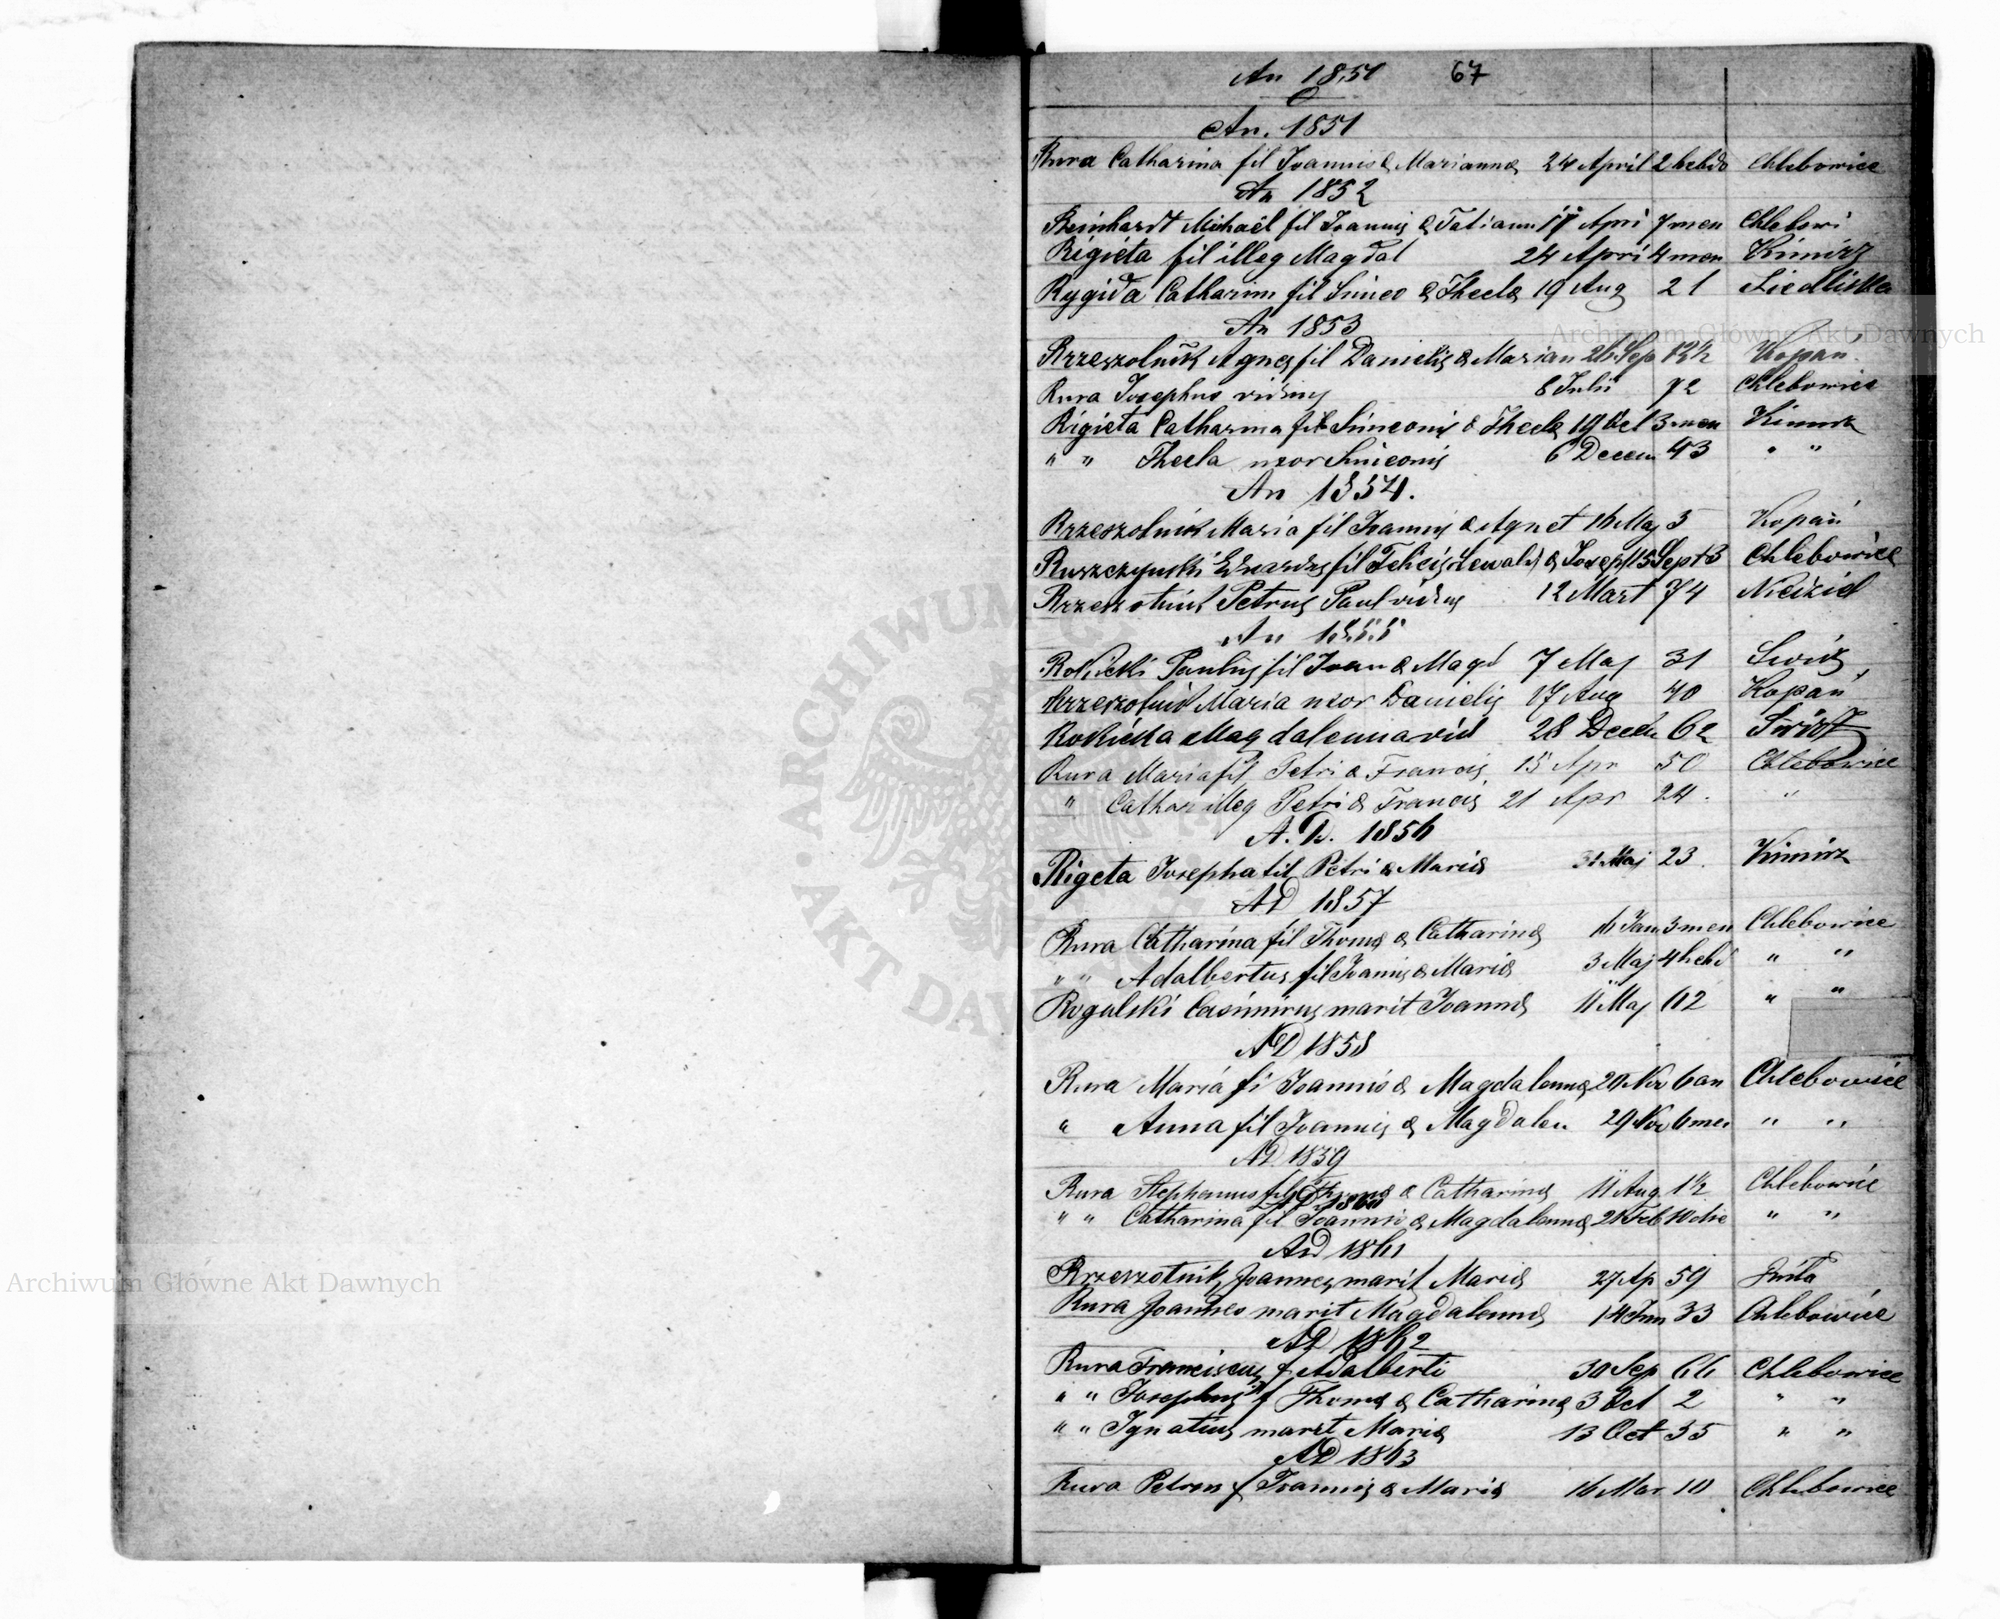 An 1851 67
An. 1851
Rura Catharina fil Joannis & Mariannæ 24 April 2 hebdo Chlebowice
An 1852
Reinhardt Michaël fil Joannis & Tatiann 17 Apri 7 men Chlebowi
Rigieta fil illeg Magdal 24 Apri 4 men Kimirz
Rygida Catharina fil Simeo & Theclæ 19 Aug 21 Siedliska
An 1853
Rzeszotnik Agnes fil Danielis & Marian 26 Sep 12½ Kopań
Rura Josephus viduus 8 Julii 72 Chlebowice
Rigieta Catharina fil Simeonis & Theclæ 19 Oct 3 men Kimirz
" " Thecla uxor Simeonis 6 Decem 43 " "
An 1854.
Rzeszotnik Maria fil Joannis & Agnet 16 Maj 5 Kopań
Ruszczynski Eduardus fil Felicis & Josep 15 Sept 3 Chlebowice
Rzeszotnik Petrus Paul viduus 12 Mart 74
An 1855
Rokicki Paulus fil Joan & Magd 7 Maj 31 Swirz
Rzeszotnik Maria uxor Danielis 17 Aug 40 Kopań
Rokicka Magdalenna vid 28 Decem 62 Swirz
Rura Maria fil Petri & Francis 15 Apr 50 Chlebowice
" Cathar illeg Petri & Francis 21 Apr 24. "
A. D. 1856
Rigeta Josepha fil Petri & Mariæ 31 Maj 23. Kimirz
AD 1857
Rura Catharina fil Thomæ & Catharinæ 16 Jan 3 men Chlebowice
" " Adalbertus fil Joannis & Mariæ 3 Maj 4 hebd " "
Rogalski Casimirus marit Joannæ 11 Maj 62 " "
AD 1858
Rura Maria fi Joannis & Magdalennæ 29 Nov 6 an Chlebowice
" Anna fil Joannis & Magdalen 29 Nov 6 men " "
AD 1859
Rura Stephanus fil Thomæ & Catharinæ 11 Aug 1½ Chlebowice
AD 1860
" " Catharina fil Joannis & Magdalennæ 21 Feb 10 die " "
AD 1861
Rzeszotnik Joannes marit Mariæ 27 Ap 59
Rura Joannes marit Magdalennæ 14 Jun 33 Chlebowice
AD 1862
Rura Franciscus f Adalberti 30 Sep 66 Chlebowice
" " Josephus f Thomæ & Catharinæ 3 Oct 2 " "
" " Ignatius marit Mariæ 13 Oct 35 " "
AD 1863
Rura Petrus f Joannis & Mariæ 16 Mar 10 Chlebowice
Archiwum Główne Akt Dawnych
Archiwum Główne Akt Dawnych